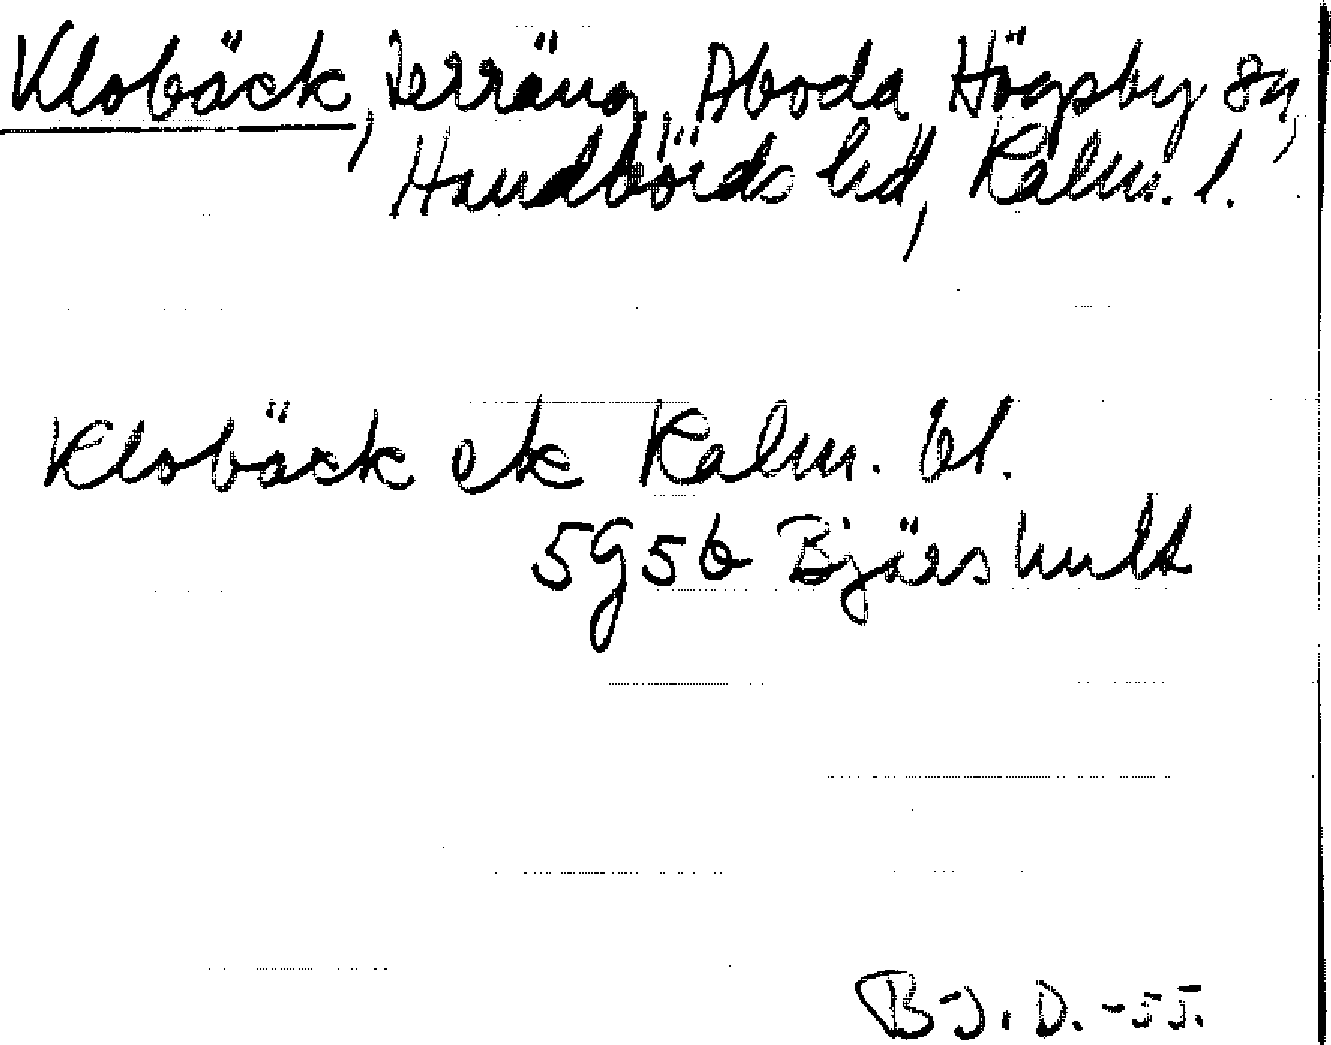 Klobäck, terräng, Aboda Högsby sn,
Handbörds hd, Kalm. l.
Klobäck ek Kalm. bl.
5g5b Bjärshult
B-J. D. -55.